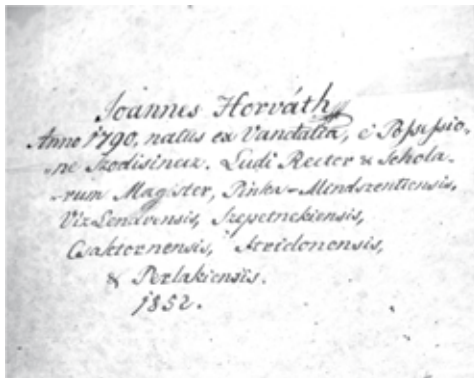 Joannes Horváth
Anno 1790, natus ex Vandalia, é Possessio-
-ne Szodisincz. Ludi Rector & Schola-
-rum Magister, Pinka-Mindszentiensis,
Viz Lendvensis, Szepetnekiensis,
Csaktornensis, Stridonensis,
& Perlakiensis.
1852.